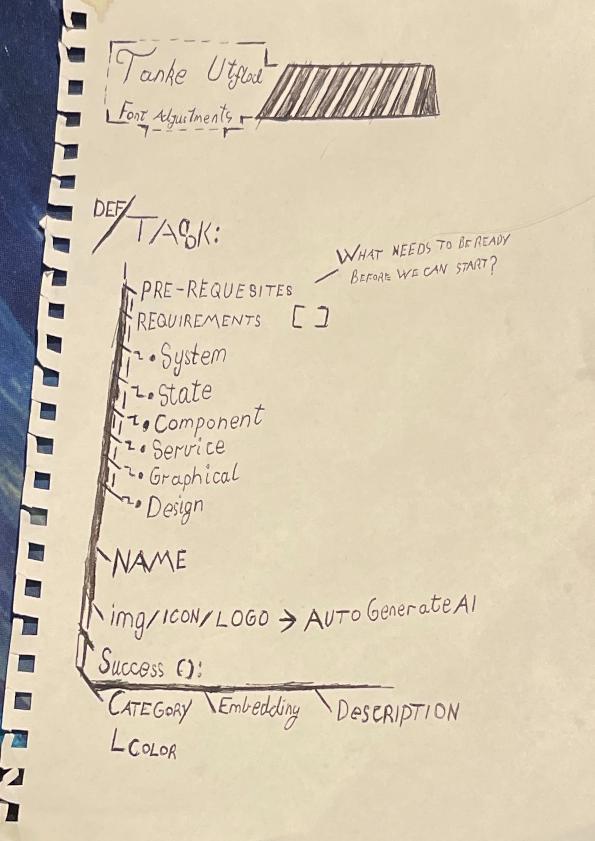 Tanke Utflod
Font Adjustments
DEF/TASK:
WHAT NEEDS TO BE READY
BEFORE WE CAN START?
PRE-REQUESITES
REQUIREMENTS []
System
State
Component
Service
Graphical
Design
NAME
img/ICON/LOGO → AUTO Generate AI
Success ():
CATEGORY \ Embedding \ DESCRIPTION
COLOR